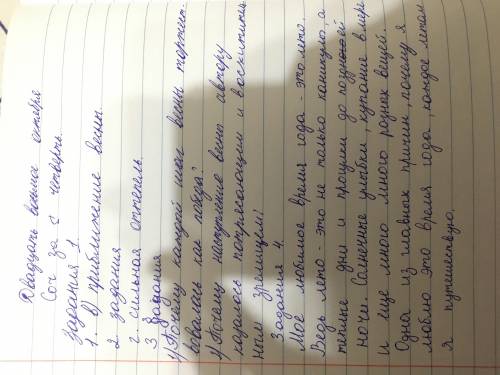 Двадцать восьмое октября
Соч за 1 четверть.
Задания 1
1. В) приближение весны.
2 задания
2. сильная оттепель
3 задания
1) Почему каждый шаг весны торжест-
вовалась как победа?
2) Почему наступление весны автору
казалось потрясающим и восхититель-
ным зрелищем?
Задания 4.
Мое любимое время года - это лето.
Ведь лето - это не только каникулы, а
теплые дни и прогулки до поздней
ночи. Солнечные улыбки, купание в море
и еще много много разных вещей.
Одна из главных причин, почему я
люблю это время года, каждое летом
я путешествую.